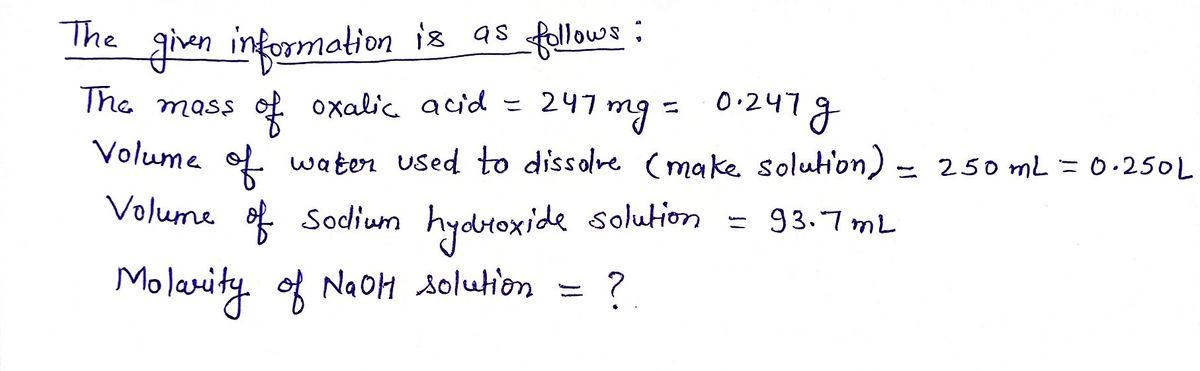 The given information is as follows :
The mass of oxalic acid = 247 mg = 0.247 g
Volume of water used to dissolve (make solution) = 250 mL = 0.250L
Volume of sodium hydroxide solution = 93.7 mL
Molarity of NaOH solution = ?